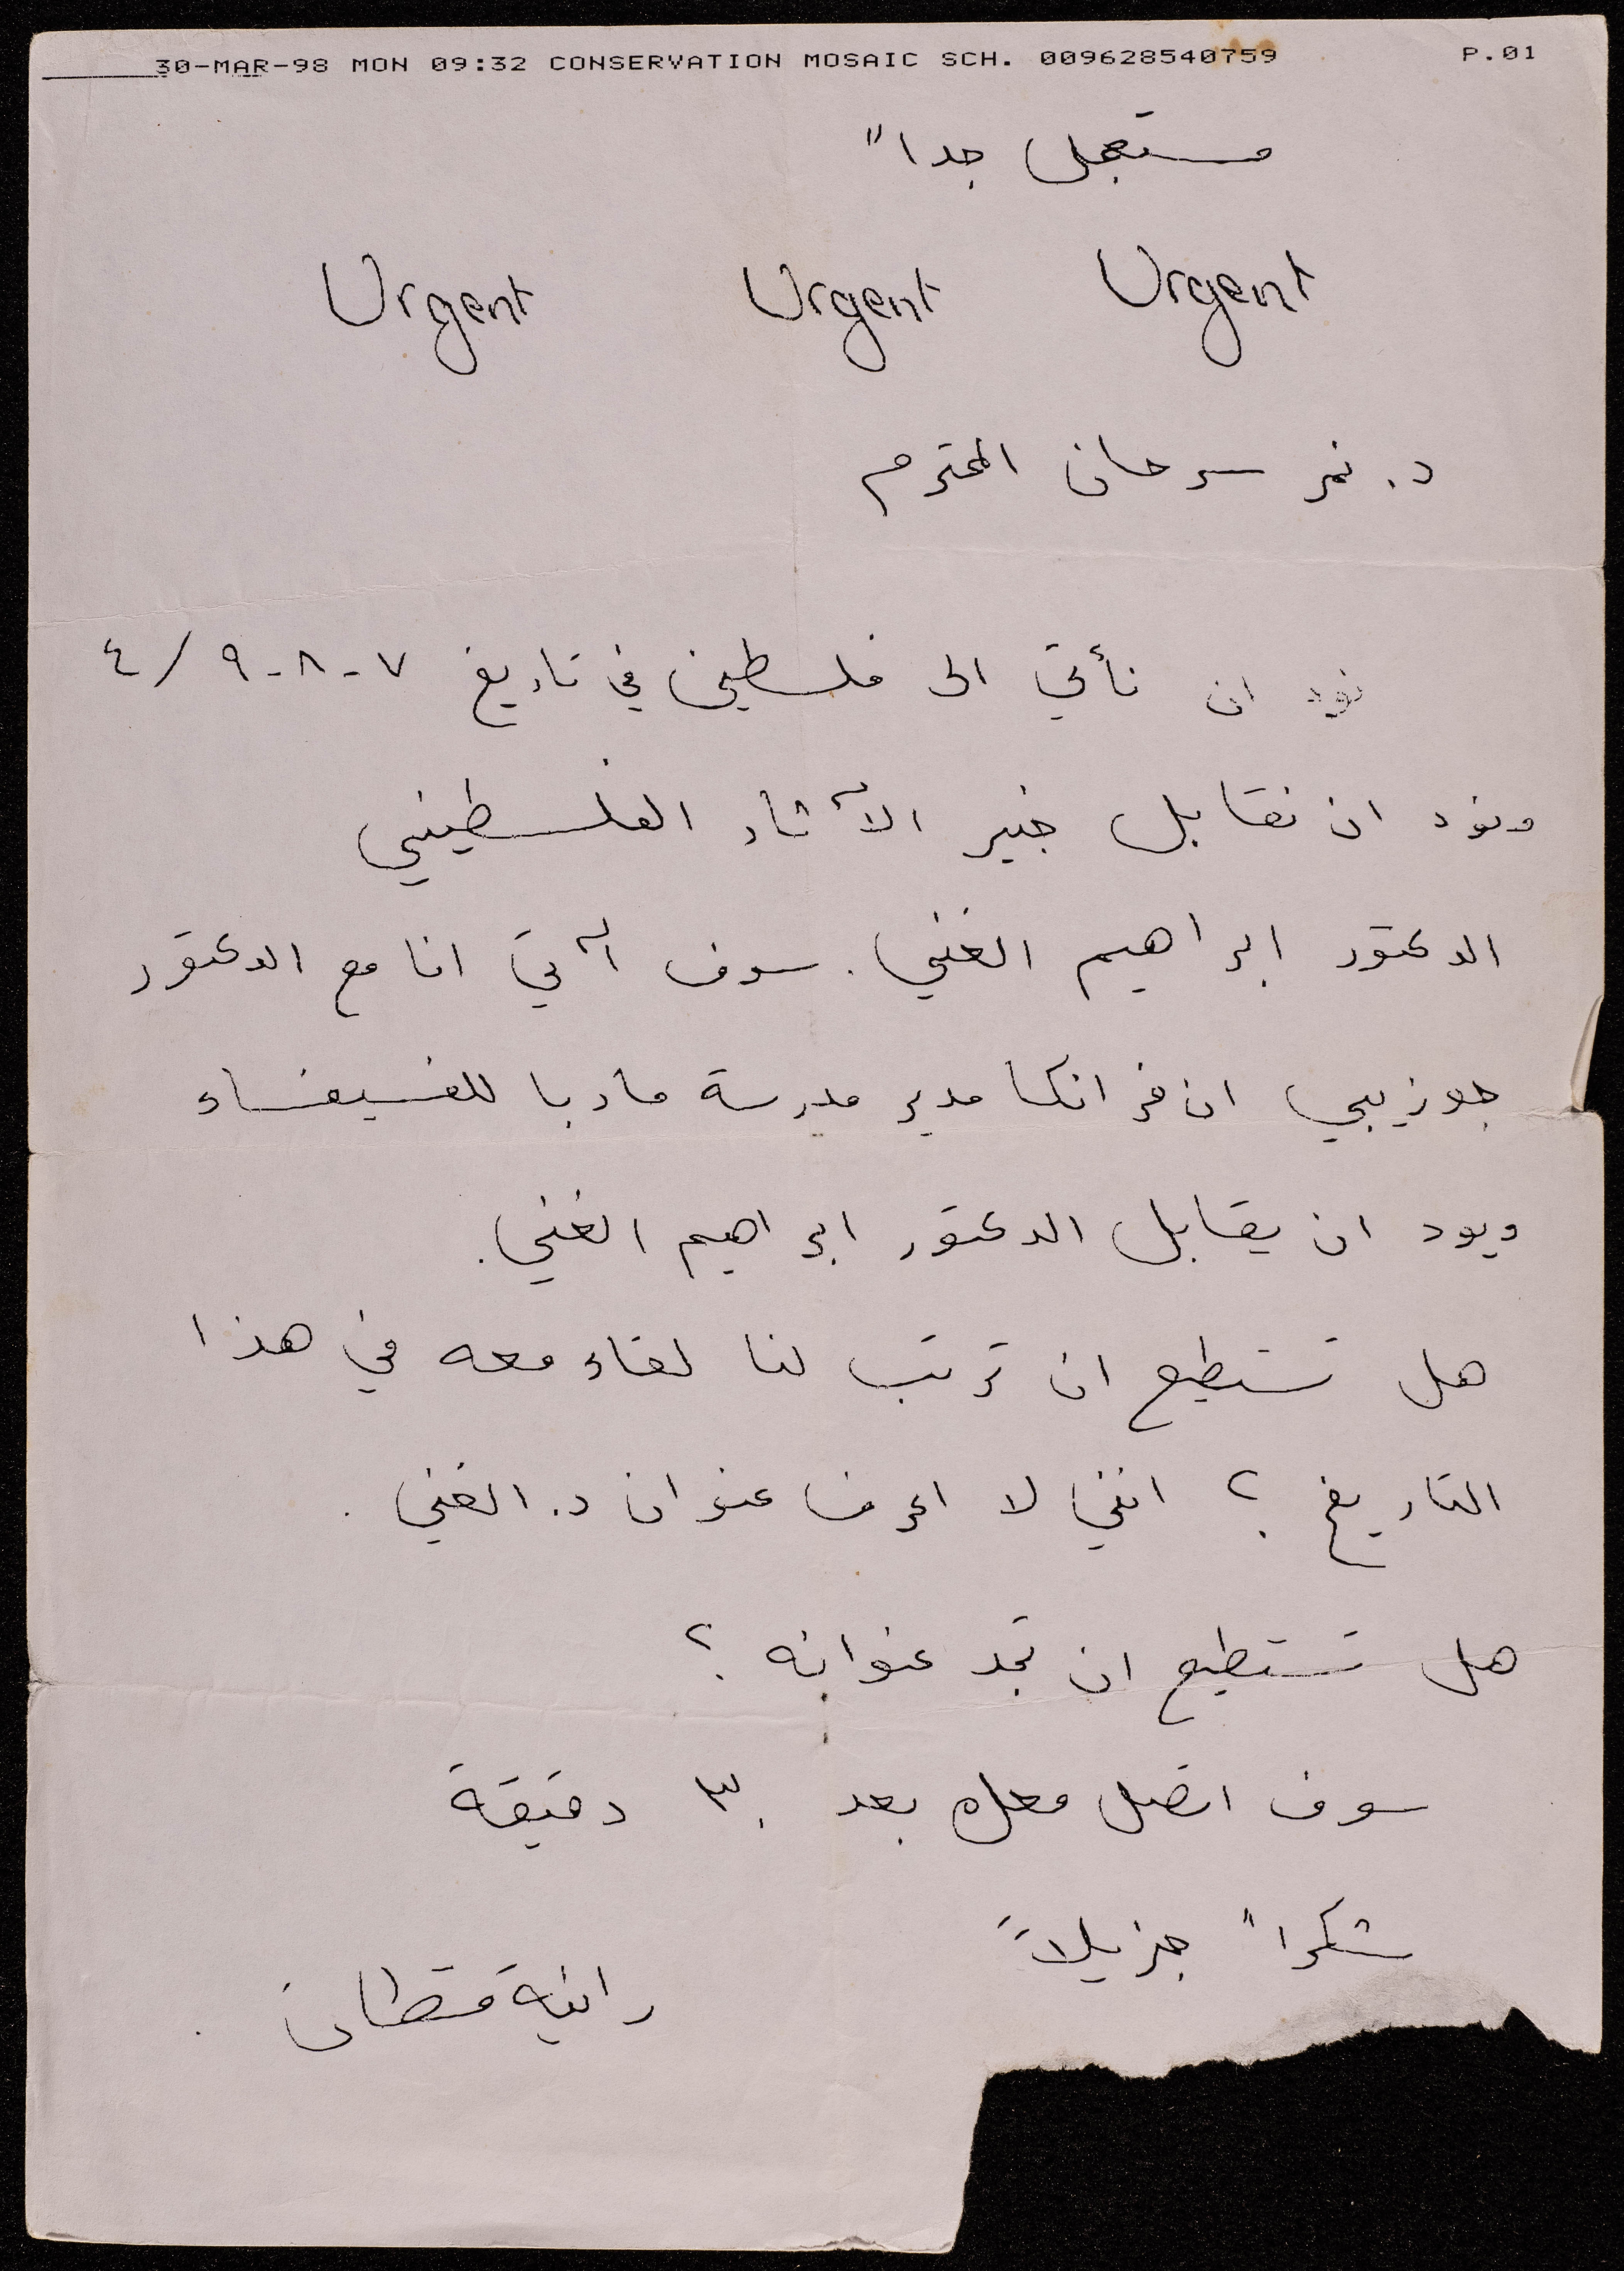 30-MAR-98 MON 09:32 CONSERVATION MOSAIC SCH. 009628540759 P.01
مستعجل جداً
Urgent Urgent Urgent
د. نمر سرحان المحترم
نود ان نأتي الى فلسطين في تاريخ ٧-٨-٩/٤
ونود ان نقابل خبير الآثار الفلسطيني
الدكتور ابراهيم الغني. سوف آتي انا مع الدكتور
جوزيبي ان فرانكا مدير مدرسة مادبا للفسيفساء
ويود ان يقابل الدكتور ابراهيم الغني.
هل تستطيع ان ترتب لنا لقاء معه في هذا
التاريخ؟ انني لا اعرف عنوان د. الغني.
هل تستطيع ان تجد عنوانه؟
سوف اتصل معك بعد ٣٠ دقيقة
شكراً جزيلاً
رانية قطان.